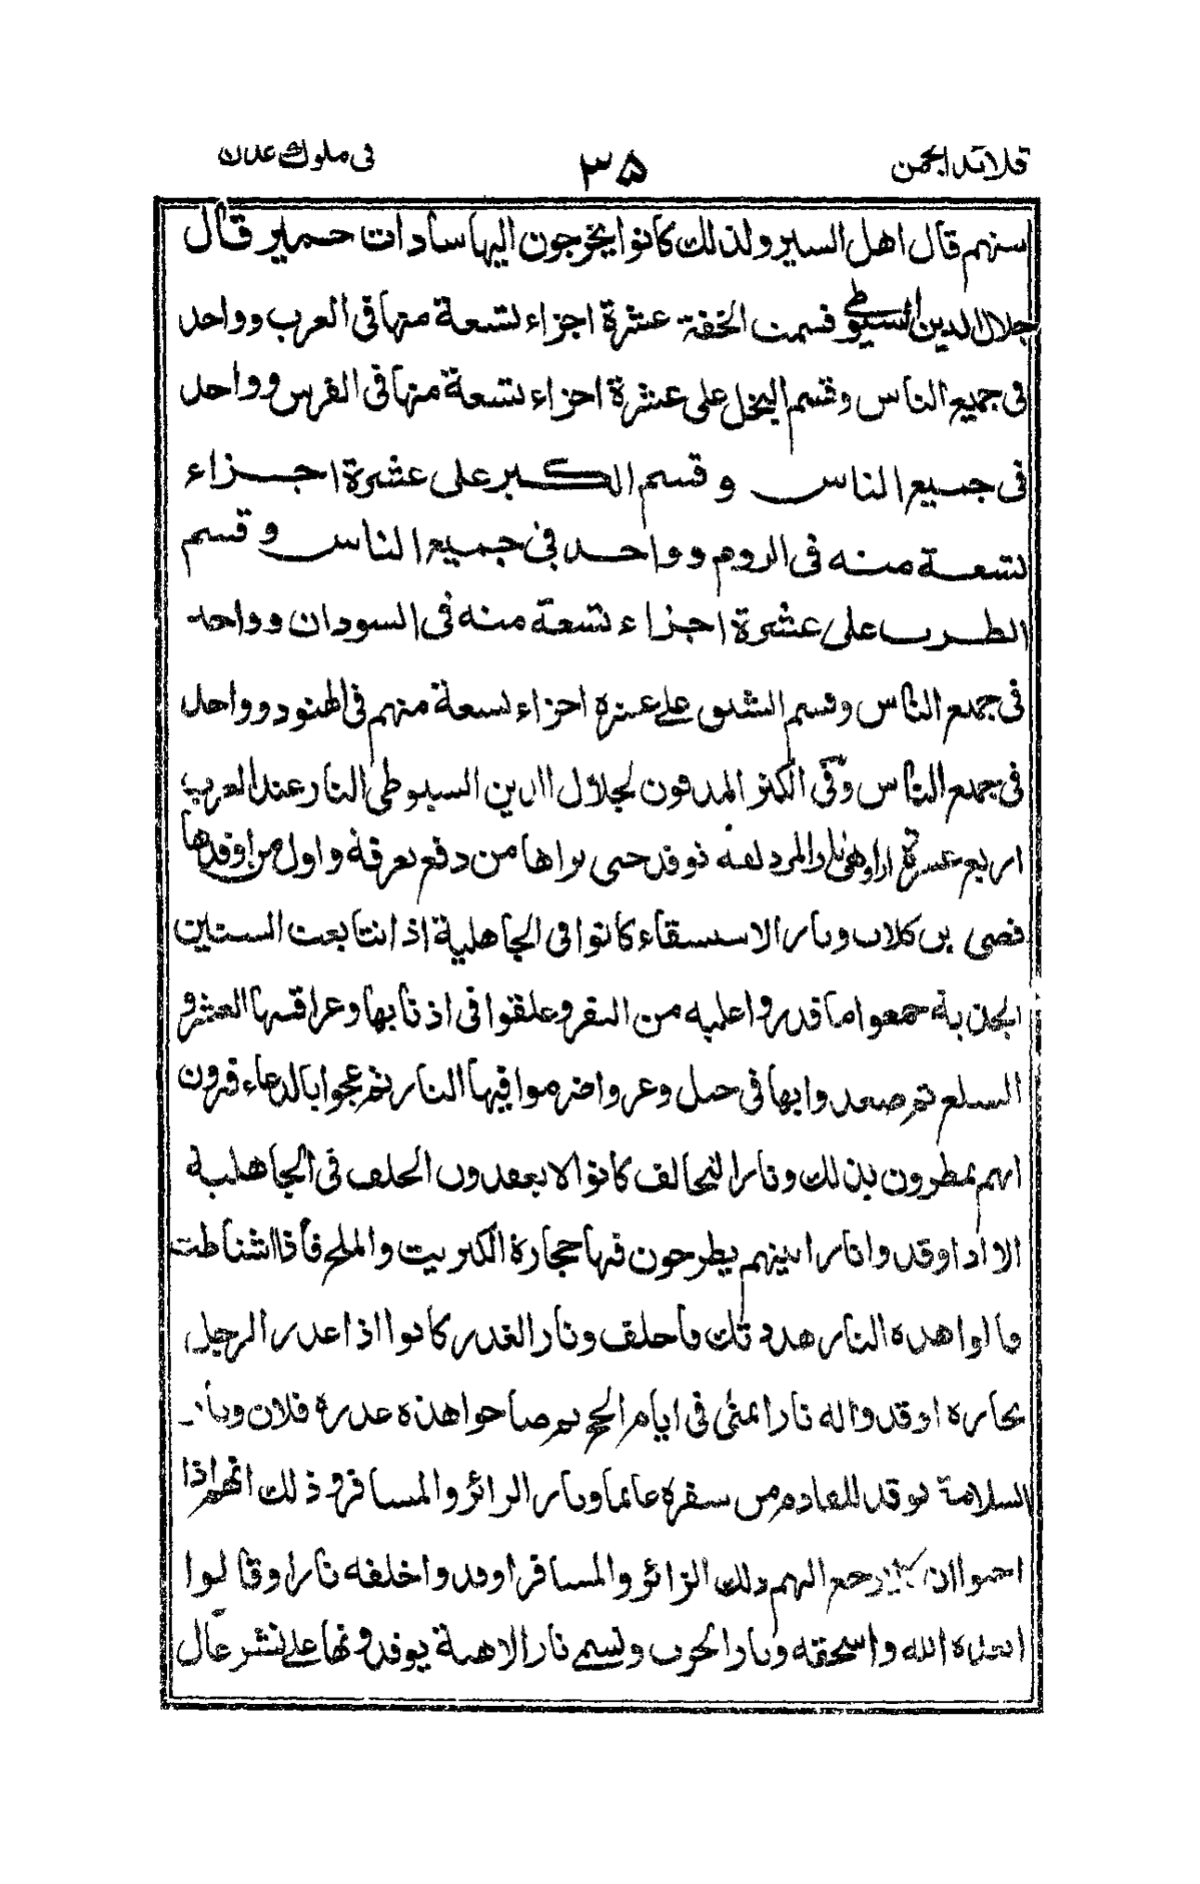 قلائد الجمن ٣٥ فى ملوك عدن
سنهم قال اهل السير ولذلك كانوا يخرجون اليها سادات حمير قال
جلال الدين السيوطي قسمت الخفة عشرة اجزاء تسعة منها فى العرب وواحد
فى جميع الناس وقسم البخل على عشرة اجزاء تسعة منها فى الفرس وواحد
فى جميع الناس وقسم الكبر على عشرة اجزاء
تسعة منه فى الروم وواحد فى جميع الناس وقسم
الطرب على عشرة اجزاء تسعة منه فى السودان وواحد
فى جميع الناس وقسم الشبق على عشرة اجزاء تسعة منهم فى الهنود وواحد
فى جميع الناس وفى الكنز المدفون لجلال الدين السيوطى النار عند العرب
اربع عشرة نارا وهى نار المزدلفة توقد حتى يراها من دفع بعرفة واول من اوقدها
قصى بن كلاب ونار الاستسقاء كانوا فى الجاهلية اذا تتابعت السنين
الجدبة جمعوا ما قدروا عليه من البقر وعلقوا فى اذنابها وعراقيبها العشر و
السلع ثم صعدوا بها فى جبل وعر واضرموا فيها النار ثم عجوا بالدعاء فيرون
انهم يمطرون بذلك ونار التحالف كانوا لا يعقدون الحلف فى الجاهلية
الا اذا اوقدوا نارا بينهم يطرحون فيها حجارة الكبريت والملح فاذا اشتاطت
قالوا هذه النار هددتك ما حلف ونار الغدر كانوا اذا غدر الرجل
بجاره اوقدوا له نارا بمنى فى ايام الحج ثم صاحوا هذه غدرة فلان ونار
السلامة توقد للقادم من سفره غانما ونار الزائر والمسافر وذلك انهم اذا
احبوا ان لا يرجع اليهم ذلك الزائر والمسافر اوقدوا خلفه نارا وقالوا
ابعده الله واسحقه ونار الحرب وتسمى نار الاهبة يوقدونها على نشر عال